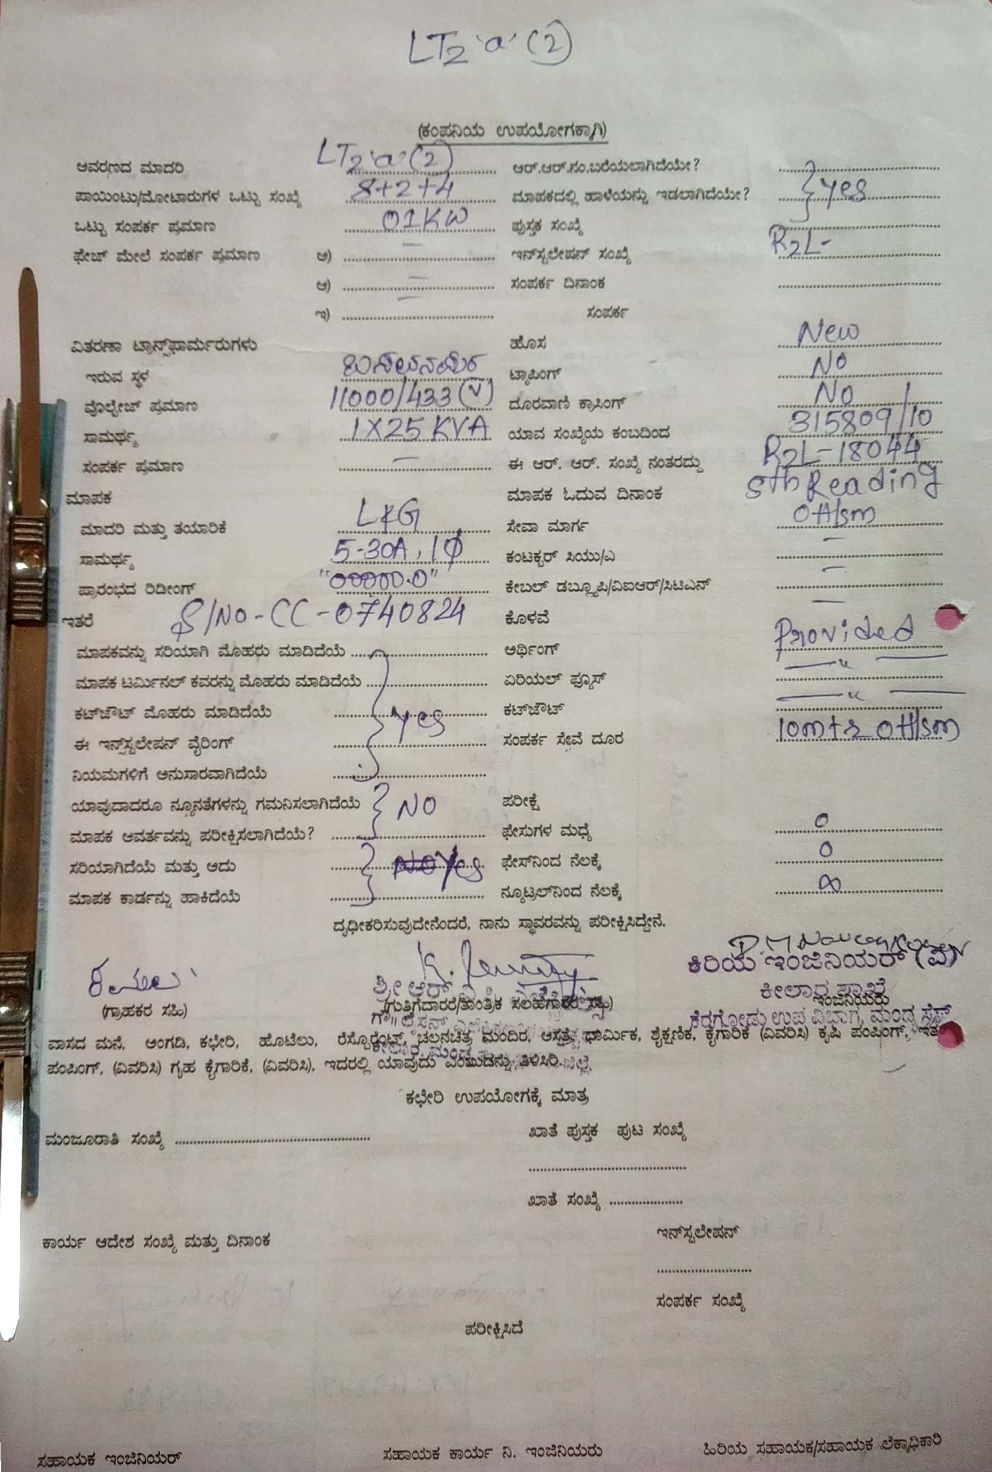 LT2 'a' (2)
(ಕಂಪನಿಯ ಉಪಯೋಗಕ್ಕಾಗಿ)
ಆವರಣದ ಮಾದರಿ LT2 'a' (2) ಆರ್.ಆರ್.ನಂ.ಬರೆಯಲಾಗಿದೆಯೇ?
ಪಾಯಿಂಟು/ಮೋಟಾರುಗಳ ಒಟ್ಟು ಸಂಖ್ಯೆ 8+2+4 ಮಾಪಕದಲ್ಲಿ ಹಾಳೆಯನ್ನು ಇಡಲಾಗಿದೆಯೇ? yes
ಒಟ್ಟು ಸಂಪರ್ಕ ಪ್ರಮಾಣ 01KW ಪುಸ್ತಕ ಸಂಖ್ಯೆ
ಫೇಜ್ ಮೇಲೆ ಸಂಪರ್ಕ ಪ್ರಮಾಣ ಅ) – ಇನ್‌ಸ್ಟಲೇಷನ್ ಸಂಖ್ಯೆ R2L-
ಆ) – ಸಂಪರ್ಕ ದಿನಾಂಕ
ಇ) ಸಂಪರ್ಕ
ವಿತರಣಾ ಟ್ರಾನ್ಸ್‌ಫಾರ್ಮರುಗಳು ಹೊಸ New
ಇರುವ ಸ್ಥಳ ಟ್ಯಾಪಿಂಗ್ No
ವೋಲ್ಟೇಜ್ ಪ್ರಮಾಣ 11000/433 (V) ದೂರವಾಣಿ ಕ್ರಾಸಿಂಗ್ No
ಸಾಮರ್ಥ್ಯ 1X25 KVA ಯಾವ ಸಂಖ್ಯೆಯ ಕಂಬದಿಂದ 315809/10
ಸಂಪರ್ಕ ಪ್ರಮಾಣ – ಈ ಆರ್. ಆರ್. ಸಂಖ್ಯೆ ನಂತರದ್ದು R2L-18044
ಮಾಪಕ ಮಾಪಕ ಓದುವ ದಿನಾಂಕ 5th Reading
ಮಾದರಿ ಮತ್ತು ತಯಾರಿಕೆ L&G ಸೇವಾ ಮಾರ್ಗ OH/sm
ಸಾಮರ್ಥ್ಯ 5-30A, 1ϕ ಕಂಟಕ್ಟರ್ ಸಿಯು/ಎ –
ಪ್ರಾರಂಭದ ರಿಡೀಂಗ್ "00000.0" ಕೇಬಲ್ ಡಬ್ಲ್ಯೂಪಿ/ವಿಐಆರ್/ಸಿಟಿಎನ್ –
ಇತರೆ S/No-CC-0740824 ಕೊಳವೆ –
ಮಾಪಕವನ್ನು ಸರಿಯಾಗಿ ಮೊಹರು ಮಾಡಿದೆಯೆ ಅರ್ಥಿಂಗ್ Provided
ಮಾಪಕ ಟರ್ಮಿನಲ್ ಕವರನ್ನು ಮೊಹರು ಮಾಡಿದೆಯೆ ಏರಿಯಲ್ ಫ್ಯೂಸ್ — " —
ಕಟ್‌ಔಟ್ ಮೊಹರು ಮಾಡಿದೆಯೆ yes ಕಟ್‌ಔಟ್ — " —
ಈ ಇನ್‌ಸ್ಟಲೇಷನ್ ವೈರಿಂಗ್ ಸಂಪರ್ಕ ಸೇವೆ ದೂರ 10mts OH/sm
ನಿಯಮಗಳಿಗೆ ಅನುಸಾರವಾಗಿದೆಯೆ
ಯಾವುದಾದರೂ ನ್ಯೂನತೆಗಳನ್ನು ಗಮನಿಸಲಾಗಿದೆಯೆ NO ಪರೀಕ್ಷೆ
ಮಾಪಕ ಆವರ್ತವನ್ನು ಪರೀಕ್ಷಿಸಲಾಗಿದೆಯೆ? ಫೇಸುಗಳ ಮಧ್ಯೆ 0
ಸರಿಯಾಗಿದೆಯೆ ಮತ್ತು ಅದು Yes ಫೇಸ್‌ನಿಂದ ನೆಲಕ್ಕೆ 0
ಮಾಪಕ ಕಾರ್ಡನ್ನು ಹಾಕಿದೆಯೆ ನ್ಯೂಟ್ರಲ್‌ನಿಂದ ನೆಲಕ್ಕೆ ∞
ದೃಢೀಕರಿಸುವುದೇನೆಂದರೆ, ನಾನು ಸ್ಥಾವರವನ್ನು ಪರೀಕ್ಷಿಸಿದ್ದೇನೆ.
ಕಿರಿಯ ಇಂಜಿನಿಯರ್ (ವಿ)
ಕೀಲಾರ ಶಾಖೆ
(ಗ್ರಾಹಕರ ಸಹಿ) (ಗುತ್ತಿಗೆದಾರರ/ತಾಂತ್ರಿಕ ಸಲಹೆಗಾರರ ಸಹಿ) ಇಂಜಿನಿಯರು
ಕೆರಗೋಡು ಉಪ ವಿಭಾಗ, ಮಂಡ್ಯ
ವಾಸದ ಮನೆ, ಅಂಗಡಿ, ಕಛೇರಿ, ಹೊಟೆಲು, ರೆಸ್ಟೊರೆಂಟ್, ಚಲನಚಿತ್ರ ಮಂದಿರ, ಆಸ್ಪತ್ರೆ, ಧಾರ್ಮಿಕ, ಶೈಕ್ಷಣಿಕ, ಕೈಗಾರಿಕೆ (ವಿವರಿಸಿ) ಕೃಷಿ ಪಂಪಿಂಗ್, ಇತರೆ
ಪಂಪಿಂಗ್, (ವಿವರಿಸಿ) ಗೃಹ ಕೈಗಾರಿಕೆ, (ವಿವರಿಸಿ), ಇದರಲ್ಲಿ ಯಾವುದು ಎಂಬುದನ್ನು ತಿಳಿಸಿರಿ.
ಕಛೇರಿ ಉಪಯೋಗಕ್ಕೆ ಮಾತ್ರ
ಮಂಜೂರಾತಿ ಸಂಖ್ಯೆ ಖಾತೆ ಪುಸ್ತಕ ಪುಟ ಸಂಖ್ಯೆ
ಖಾತೆ ಸಂಖ್ಯೆ
ಕಾರ್ಯ ಆದೇಶ ಸಂಖ್ಯೆ ಮತ್ತು ದಿನಾಂಕ ಇನ್‌ಸ್ಟಲೇಷನ್
ಸಂಪರ್ಕ ಸಂಖ್ಯೆ
ಪರೀಕ್ಷಿಸಿದೆ
ಸಹಾಯಕ ಇಂಜಿನಿಯರ್ ಸಹಾಯಕ ಕಾರ್ಯ ನಿ. ಇಂಜಿನಿಯರು ಹಿರಿಯ ಸಹಾಯಕ/ಸಹಾಯಕ ಲೆಕ್ಕಾಧಿಕಾರಿ